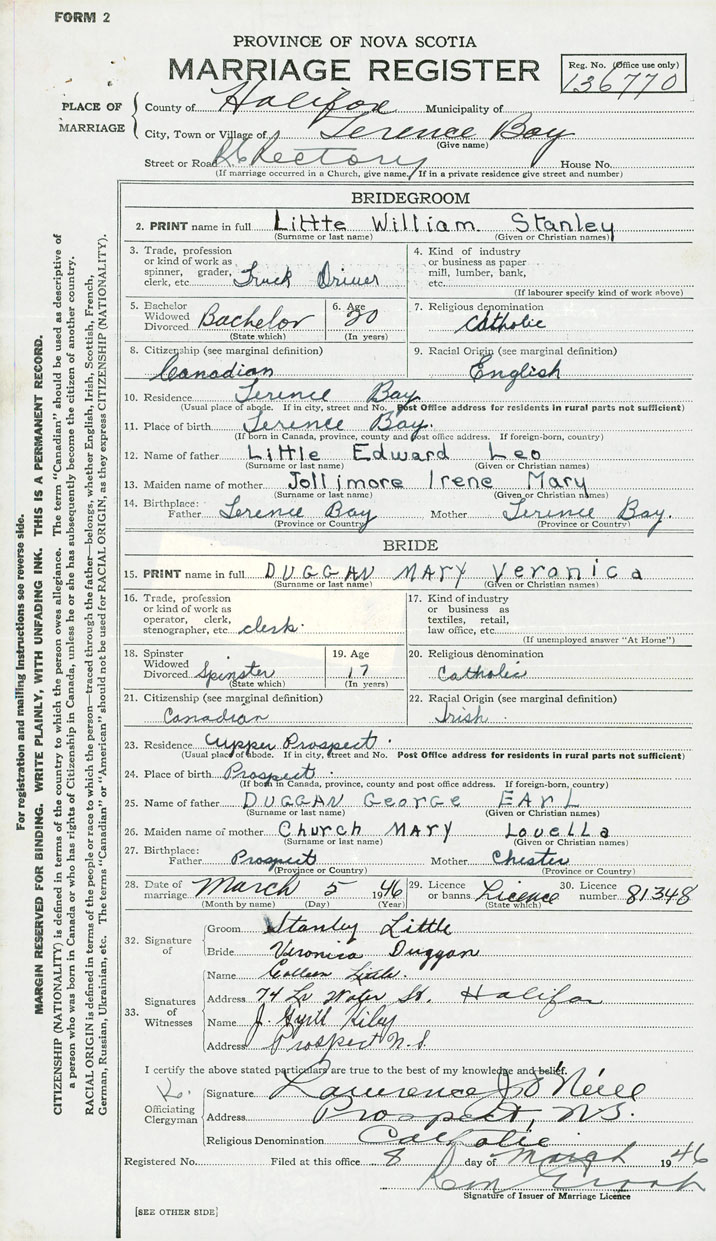 FORM 2
PROVINCE OF NOVA SCOTIA
MARRIAGE REGISTER
Reg. No. (Office use only)
136770
PLACE OF MARRIAGE
County of Halifax Municipality of
City, Town or Village of Terence Bay
(Give name)
Street or Road Rectory House No.
(If marriage occurred in a Church, give name. If in a private residence give street and number)
BRIDEGROOM
2. PRINT name in full Little William Stanley
(Surname or last name) (Given or Christian names)
3. Trade, profession or kind of work as spinner, grader, clerk, etc. Truck Driver
4. Kind of industry or business as paper mill, lumber, bank, etc.
(If labourer specify kind of work above)
5. Bachelor Widowed Divorced Bachelor
(State which)
6. Age 20
(In years)
7. Religious denomination
Catholic
8. Citizenship (see marginal definition)
Canadian
9. Racial Origin (see marginal definition)
English
10. Residence Terence Bay
(Usual place of abode. If in city, street and No. Post Office address for residents in rural parts not sufficient)
11. Place of birth Terence Bay.
(If born in Canada, province, county and post office address. If foreign-born, country)
12. Name of father Little Edward Leo
(Surname or last name) (Given or Christian names)
13. Maiden name of mother Jollimore Irene Mary
(Surname or last name) (Given or Christian names)
14. Birthplace: Father Terence Bay Mother Terence Bay.
(Province or Country) (Province or Country)
BRIDE
15. PRINT name in full DUGGAN MARY Veronica
(Surname or last name) (Given or Christian names)
16. Trade, profession or kind of work as operator, clerk, stenographer, etc. clerk.
17. Kind of industry or business as textiles, retail, law office, etc.
(If unemployed answer "At Home")
18. Spinster Widowed Divorced Spinster
(State which)
19. Age
17
(In years)
20. Religious denomination
Catholic
21. Citizenship (see marginal definition)
Canadian
22. Racial Origin (see marginal definition)
Irish.
23. Residence Upper Prospect.
(Usual place of abode. If in city, street and No. Post Office address for residents in rural parts not sufficient)
24. Place of birth Prospect.
(If born in Canada, province, county and post office address. If foreign-born, country)
25. Name of father DUGGAN George EARL
(Surname or last name) (Given or Christian names)
26. Maiden name of mother Church MARY Louella
(Surname or last name) (Given or Christian names)
27. Birthplace: Father Prospect Mother Chester
(Province or Country) (Province or Country)
28. Date of marriage March 5 1946
(Month by name) (Day) (Year)
29. Licence or banns Licence
(State which)
30. Licence number 81348
32. Signature of
Groom Stanley Little
Bride Veronica Duggan
33. Signatures of Witnesses
Name Colleen Little.
Address 74 Lr Water St. Halifax
Name J. Kiley
Address Prospect N.S.
I certify the above stated particulars are true to the best of my knowledge and belief.
Officiating Clergyman
Signature Lawrence J. O'Neill
Address Prospect, N.S.
Religious Denomination Catholic
Registered No. Filed at this office 8 day of March 1946
Signature of Issuer of Marriage Licence
[SEE OTHER SIDE]
For registration and mailing instructions see reverse side.
MARGIN RESERVED FOR BINDING. WRITE PLAINLY, WITH UNFADING INK. THIS IS A PERMANENT RECORD.
CITIZENSHIP (NATIONALITY) is defined in terms of the country to which the person owes allegiance. The term "Canadian" should be used as descriptive of
a person who was born in Canada or who has rights of Citizenship in Canada, unless he or she has subsequently become the citizen of another country.
RACIAL ORIGIN is defined in terms of the people or race to which the person—traced through the father—belongs, whether English, Irish, Scottish, French,
German, Russian, Ukrainian, etc. The terms "Canadian" or "American" should not be used for RACIAL ORIGIN, as they express CITIZENSHIP (NATIONALITY).